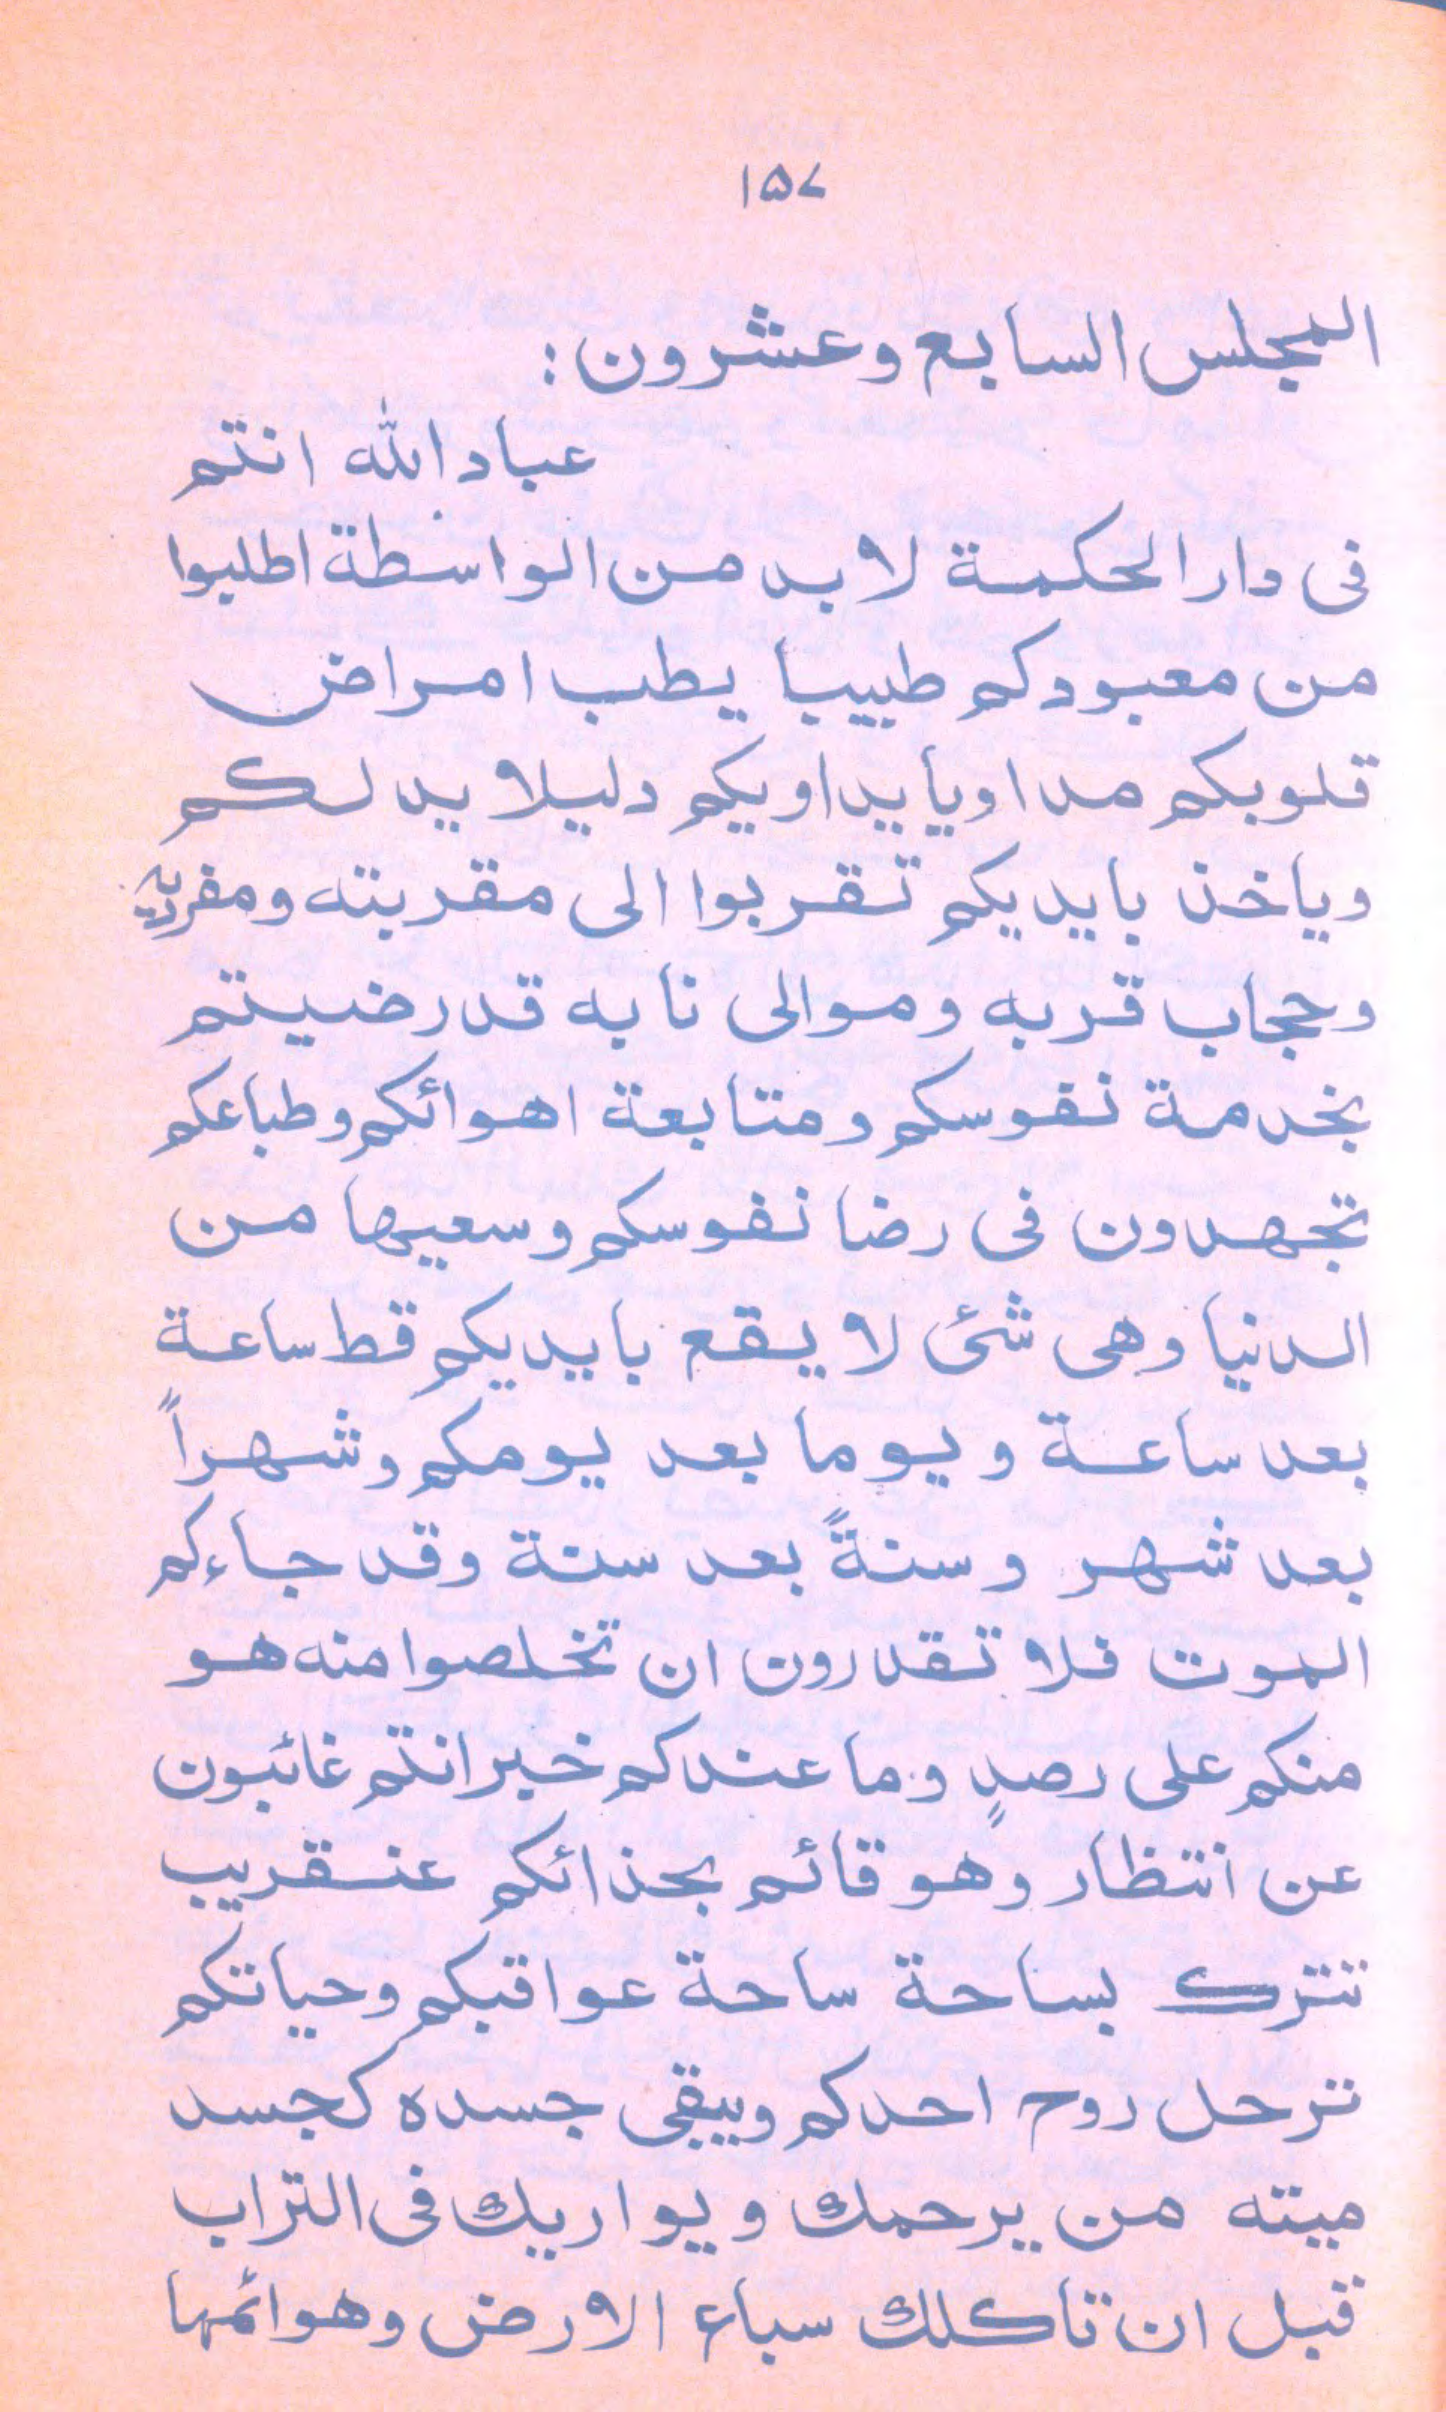 ١٥٧
المجلس السابع وعشرون :
عباد الله انتم
فى دار الحكمة لا بد من الواسطة اطلبوا
من معبودكم طبيبا يطب امراض
قلوبكم مداويا يداويكم دليلا يدلكم
وياخذ بايديكم تقربوا الى مقربته ومفرديه
وحجاب قربه وموالى نابه قد رضيتم
بخدمة نفوسكم ومتابعة اهوائكم وطباعكم
تجهدون فى رضا نفوسكم وسعيها من
الدنيا وهى شئ لا يقع بايديكم قط ساعة
بعد ساعة ويوما بعد يومكم وشهراً
بعد شهر وسنةً بعد سنة وقد جاءكم
الموت فلا تقدرون ان تخلصوا منه هو
منكم على رصدٍ وما عندكم خبر انتم غائبون
عن انتظار وهو قائم بحذائكم عنقريب
تترك بساحة ساحة عواقبكم وحياتكم
ترحل روح احدكم ويبقى جسده كجسد
ميته من يرحمك ويواريك فى التراب
قبل ان تاكلك سباع الارض وهوائمها